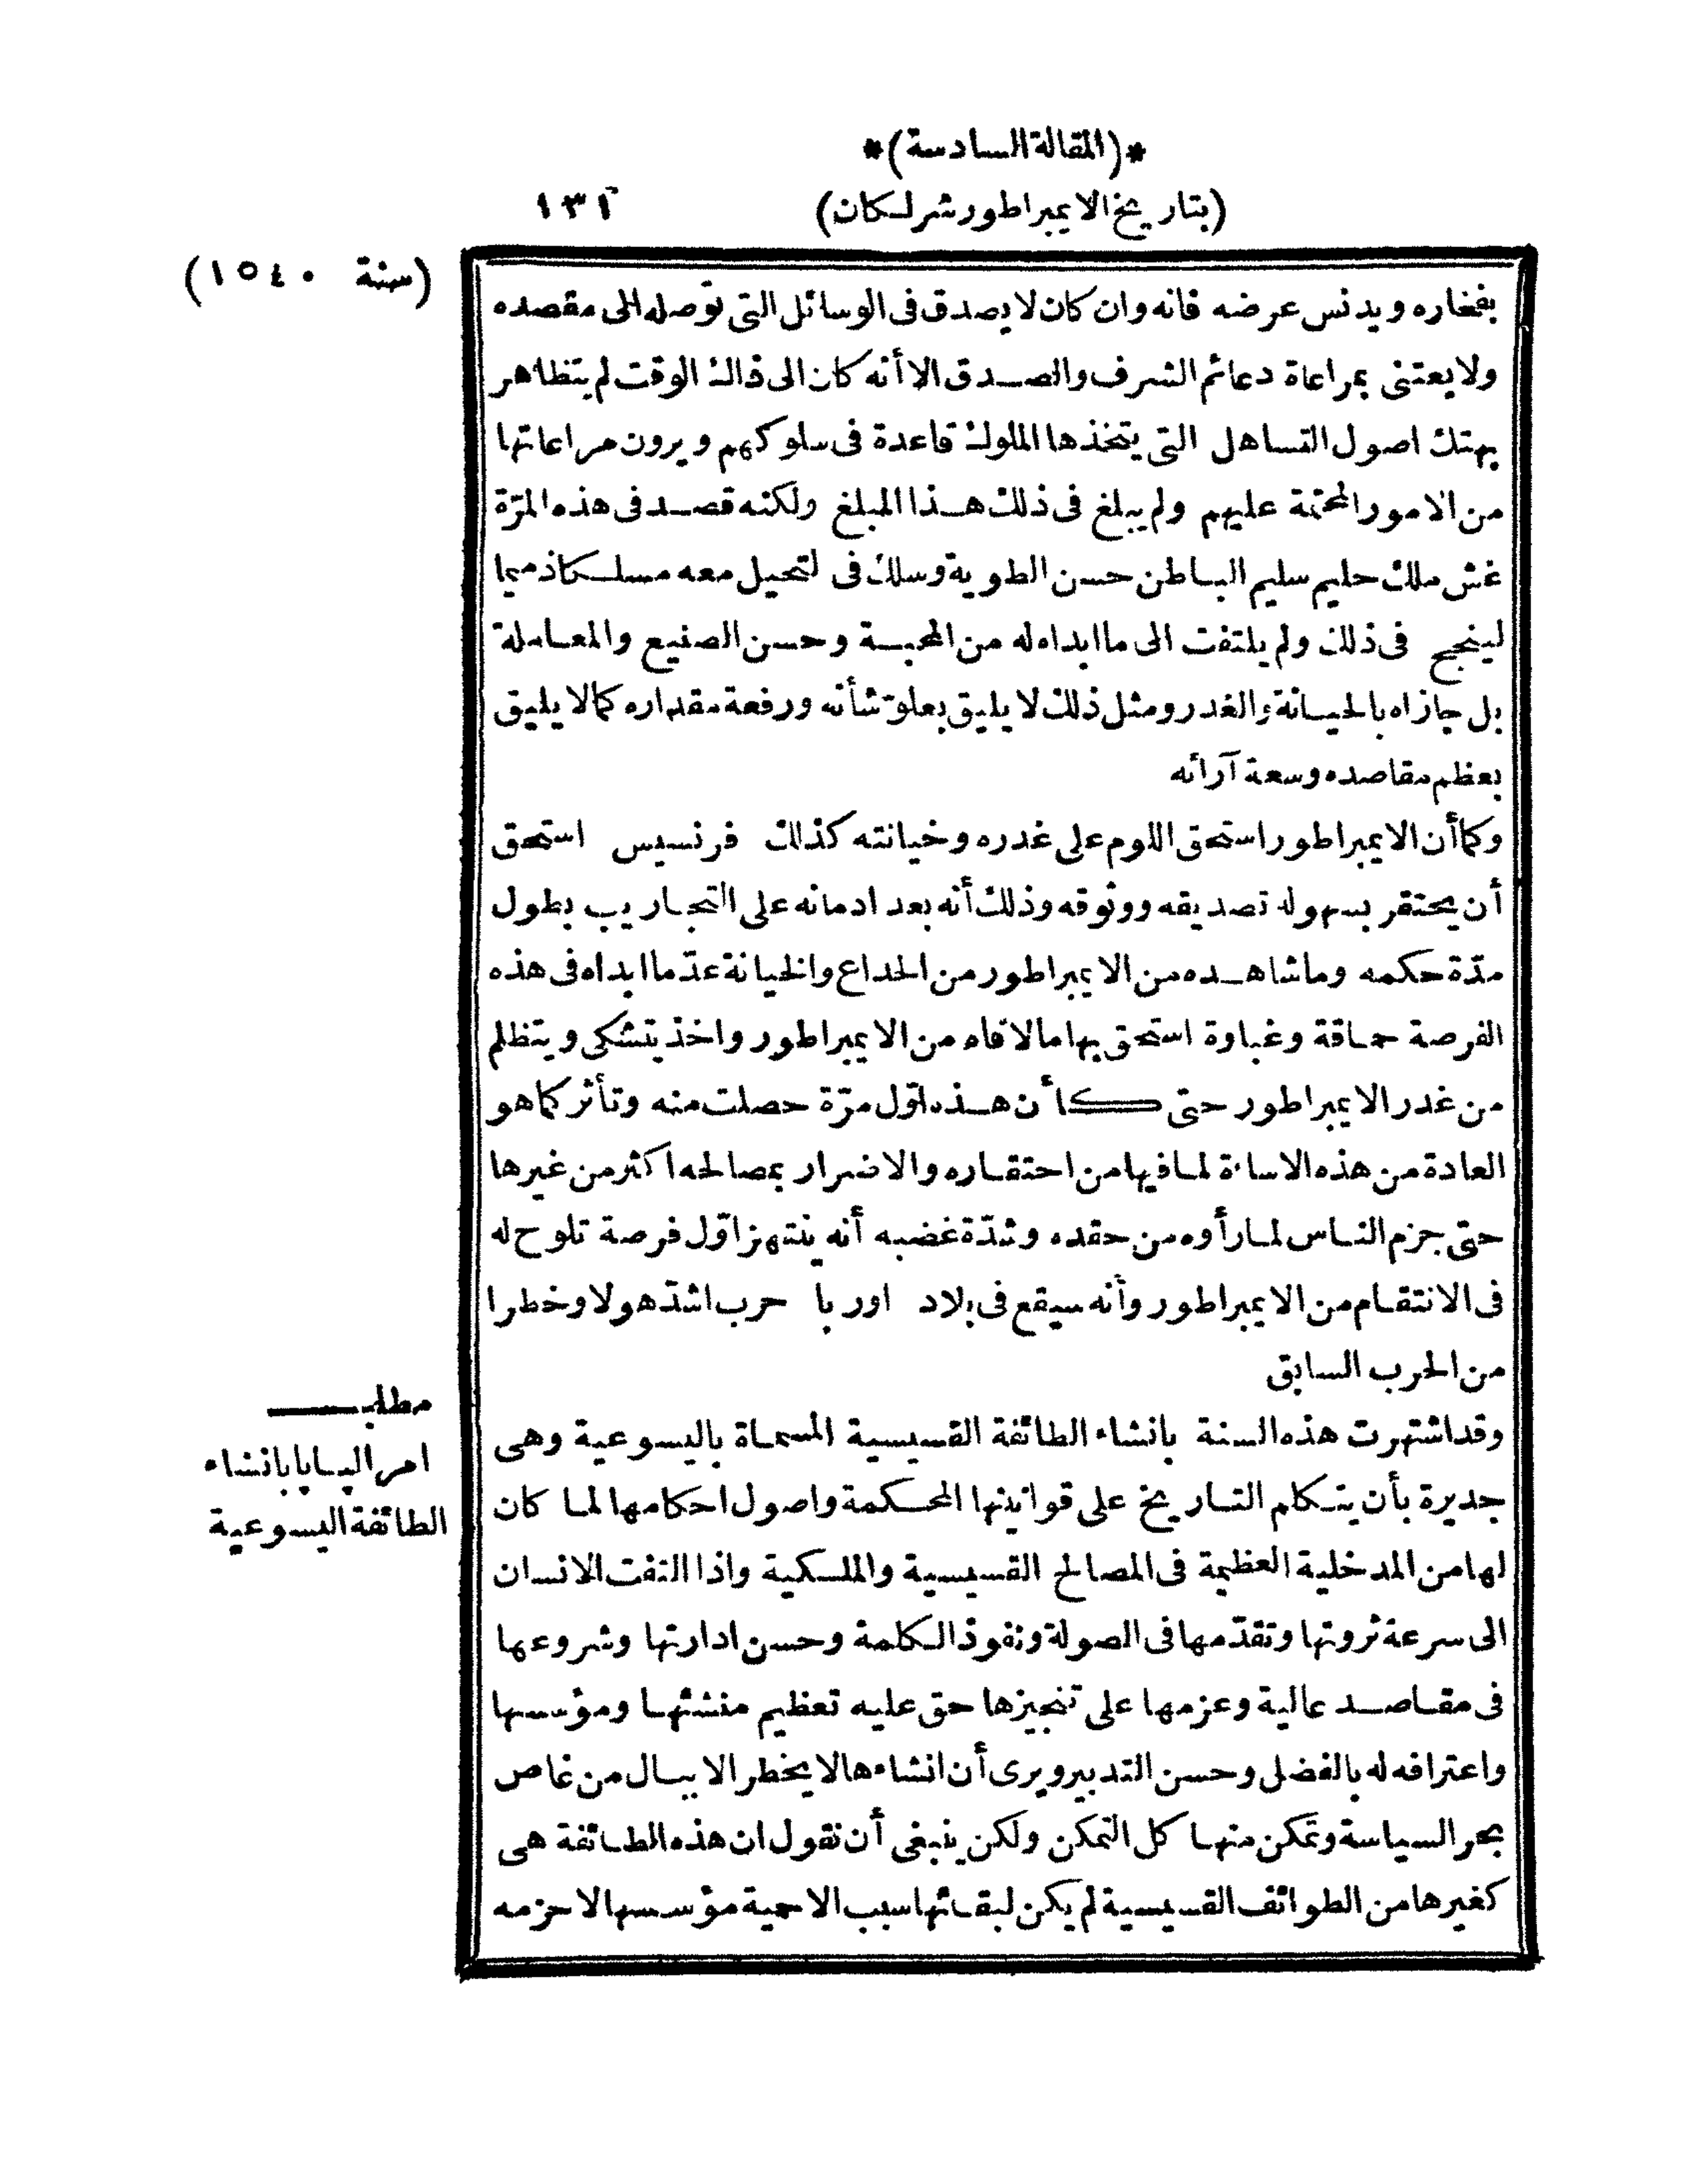 *(المقالة السادسة)*
(بتاريخ الايمبراطور شرلكان) ١٣١
(سنة ١٥٤٠)
بفخاره ويدنس عرضه فانه وان كان لا يصدق فى الوسائل التى توصله الى مقصده
ولا يعتنى بمراعاة دعائم الشرف والصدق الا أنه كان الى ذالك الوقت لم يتظاهر
بهتك اصول التساهل التى يتخذها الملوك قاعدة فى سلوكهم ويرون مراعاتها
من الامور المحتمة عليهم ولم يبلغ فى ذلك هذا المبلغ ولكنه قصد فى هذه المرّة
غش ملك حليم سليم الباطن حسن الطوية وسلك فى لتحيل معه مسلكا ذميما
لينجح فى ذلك ولم يلتفت الى ما ابداه له من المحبة وحسن الصنيع والمعاملة
بل جازاه بالخيانة والغدر ومثل ذلك لا يليق بعلوّ شأنه ورفعة مقداره كما لا يليق
بعظم مقاصده وسعة آرائه
وكما أن الايمبراطور استحق اللوم على غدره وخيانته كذلك فرنسيس استحق
أن يحتقر بسهولة تصديقه ووثوقه وذلك أنه بعد ادمانه على التجاريب بطول
مدّة حكمه وما شاهده من الايمبراطور من الخداع والخيانة عدّ ما ابداه فى هذه
الفرصة حماقة وغباوة استحق بها ما لاقاه من الايمبراطور واخذ يتشكى ويتظلم
من غدر الايمبراطور حتى كأن هذه اوّل مرّة حصلت منه وتأثر كما هو
العادة من هذه الاساءة لما فيها من احتقاره والاضرار بمصالحه اكثر من غيرها
حتى جزم الناس لما رأوه من حقده وشدّة غضبه أنه ينتهز اوّل فرصة تلوح له
فى الانتقام من الايمبراطور وأنه سيقع فى بلاد اوربا حرب اشدّ هولا وخطرا
من الحرب السابق
مطلب
امر الپاپا بانشاء
الطائفة اليسوعية
وقد اشتهرت هذه السنة بانشاء الطائفة القسيسية المسماة باليسوعية وهى
جديرة بأن يتكلم التاريخ على قوانينها المحكمة واصول احكامها لما كان
لها من المدخلية العظيمة فى المصالح القسيسية والملكية واذا التفت الانسان
الى سرعة ثروتها وتقدّمها فى الصولة ونفوذ الكلمة وحسن ادارتها وشروعها
فى مقاصد عالية وعزمها على تنجيزها حق عليه تعظيم منشئها ومؤسسها
واعترافه له بالفضل وحسن التدبير ويرى أن انشاءها لا يخطر الا ببال من غاص
بحر السياسة وتمكن منها كل التمكن ولكن ينبغى أن نقول ان هذه الطائفة هى
كغيرها من الطوائف القسيسية لم يكن لبقائها سبب الا حمية مؤسسها لا حزمه